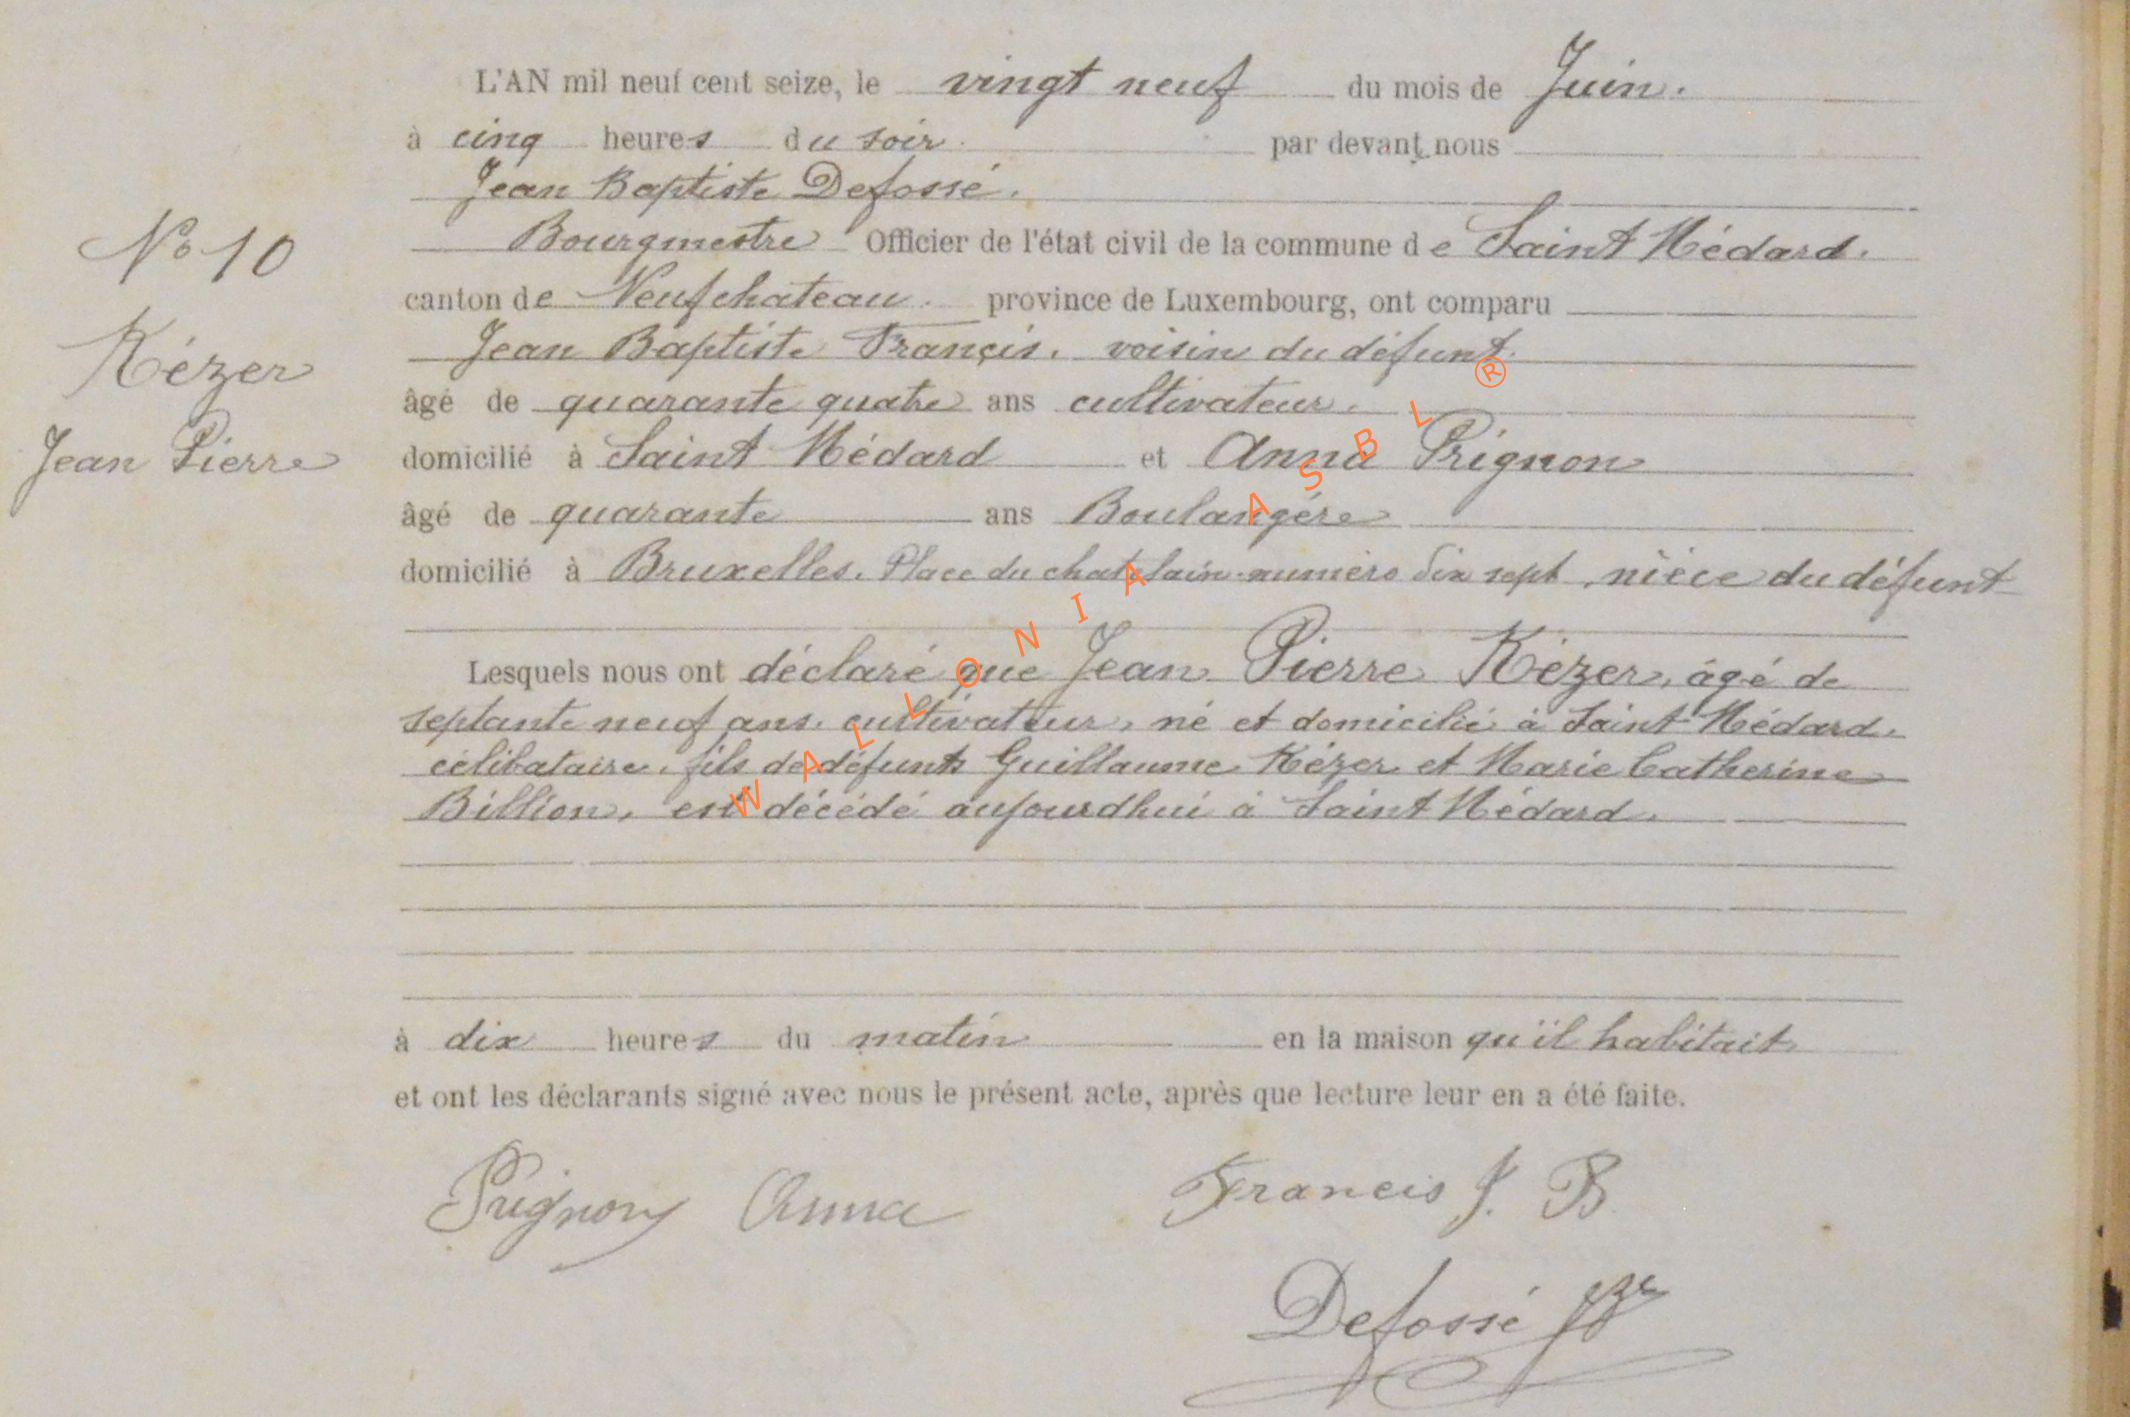 L'AN mil neuf cent seize, le vingt neuf du mois de Juin.
à cinq heures du soir par devant nous
Jean Baptiste Defossé.
Bourgmestre Officier de l'état civil de la commune de Saint Médard.
N° 10
canton de Neufchateau. province de Luxembourg, ont comparu
Jean Baptiste Francis. voisin du défunt.
Kézer
âgé de quarante quatre ans cultivateur.
Jean Pierre
domicilié à Saint Médard et Anna Prignon
âgé de quarante ans Boulangére
domicilié à Bruxelles. Place du chatelain numéro dix sept, nièce du défunt
Lesquels nous ont déclaré que Jean Pierre Kézer, âgé de
septante neuf ans. cultivateur, né et domicilié à Saint Médard.
célibataire. fils de défunts Guillaume Kézer et Marie Catherine
Billion, est décédé aujourdhui à Saint Médard.
à dix heures du matin en la maison qu'il habitait
et ont les déclarants signé avec nous le présent acte, après que lecture leur en a été faite.
Prignon Anna Francis J. B
Defossé
WALLONIA ASBL ®